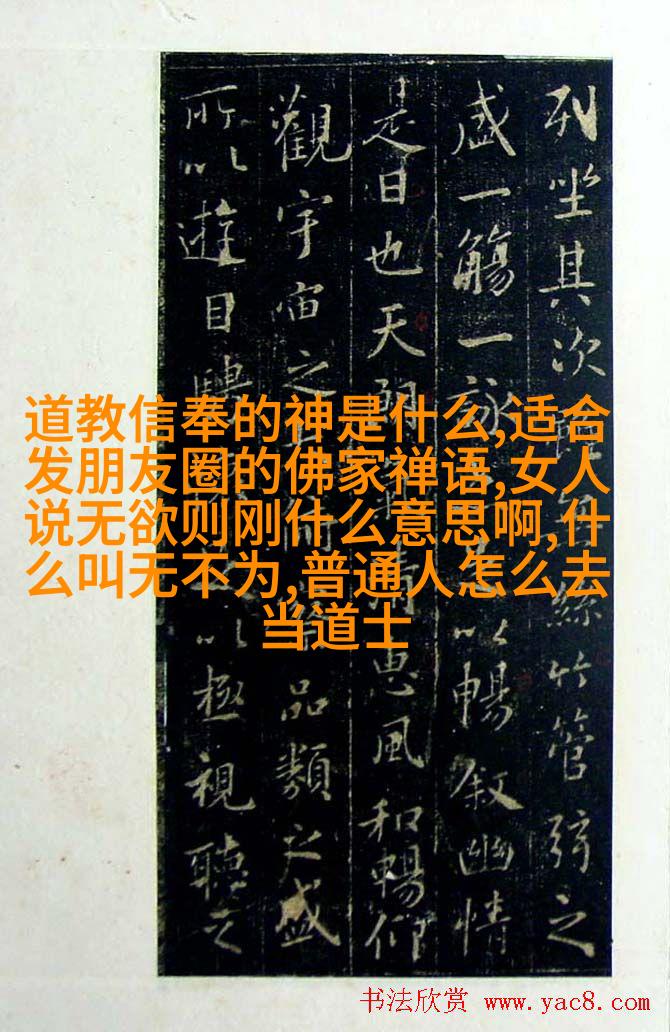 列坐其次無絲竹管弦之
盛一觴一詠以暢敘幽情
是日也天朗惠風和暢仰
觀宇宙之品類之盛
所以遊目騁以極視聽之
道教信奉的神是什么,适合
发朋友圈的佛家禅语,女人
说无欲则刚什么意思啊,什
么叫无不为,普通人怎么去
当道士
书法欣赏 www.yac8.com